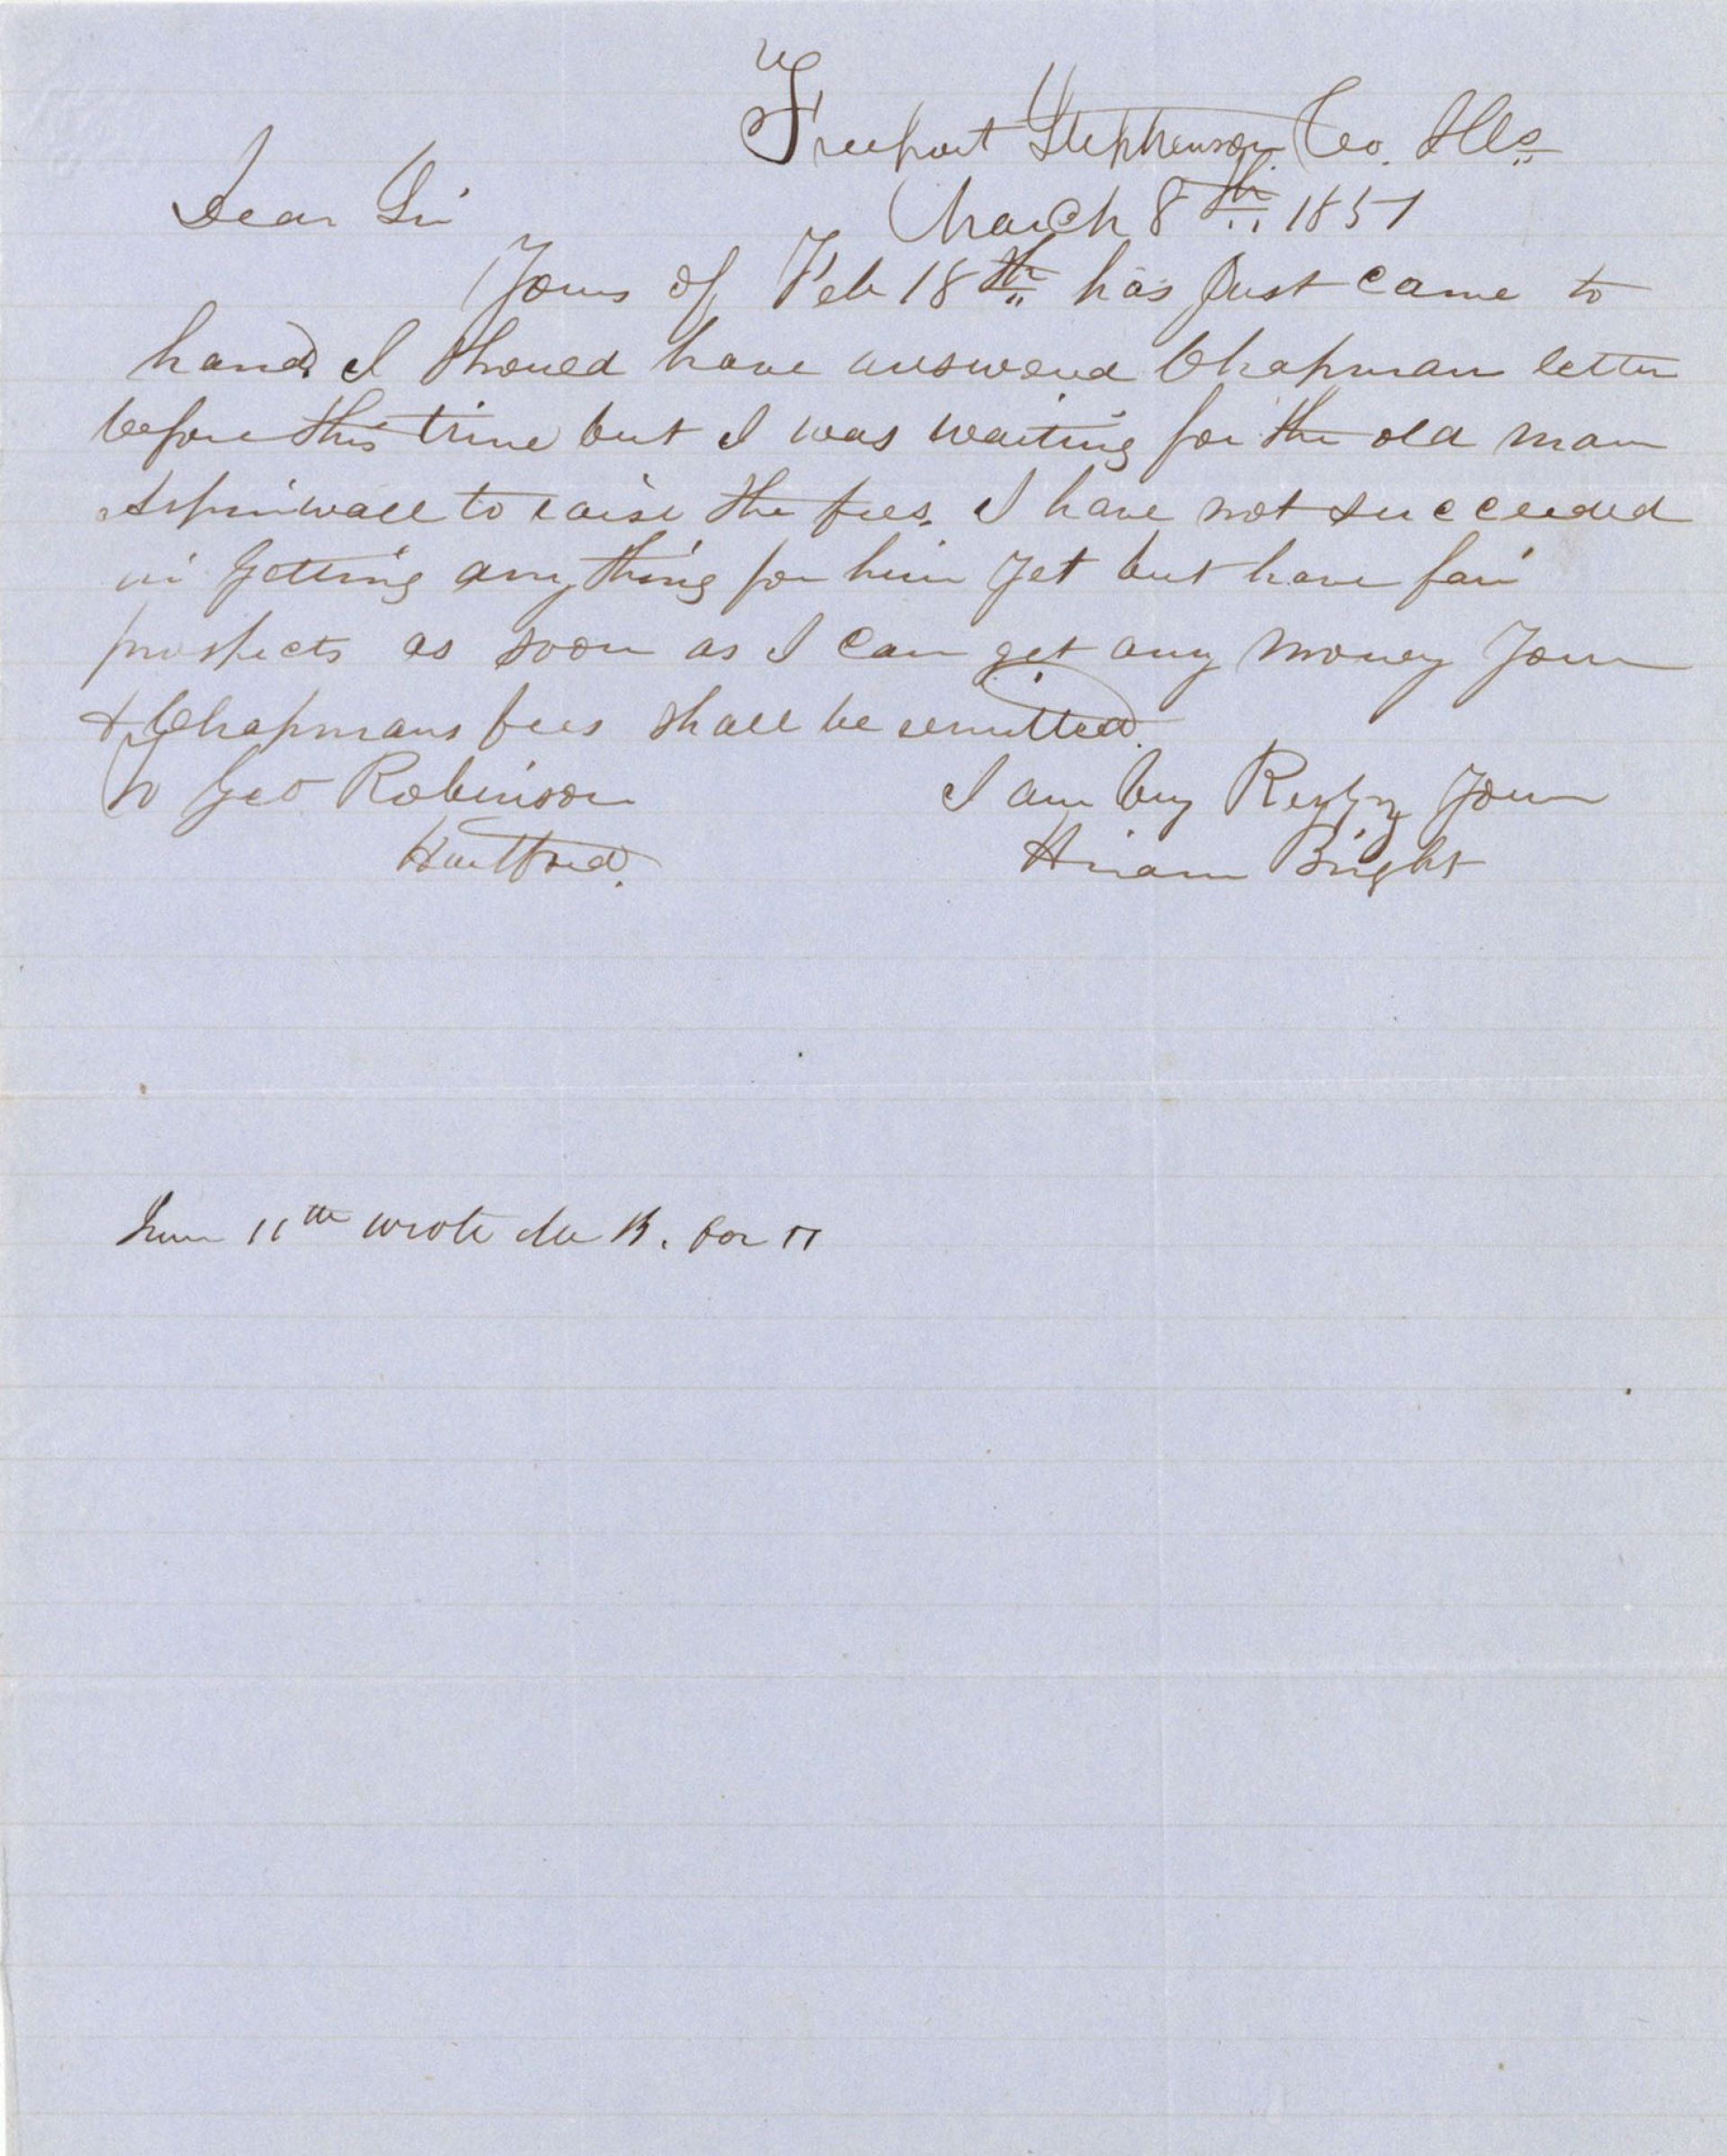 Freeport Stephenson Co. Ills
Dear Sir March 8th 1851
Yours of Feb 18th has just came to
hand. I should have answerd Chapman letter
before this time but I was waiting for the old man
Aspinwall to raise the fees. I have not succeeded
in getting any thing for him yet but have fair
prospects as soon as I can get any money your
& Chapmans fees shall be remitted.
To Geo Robinson I am very your
Hartford. Hiram Bright
June 11th wrote Mr B. for